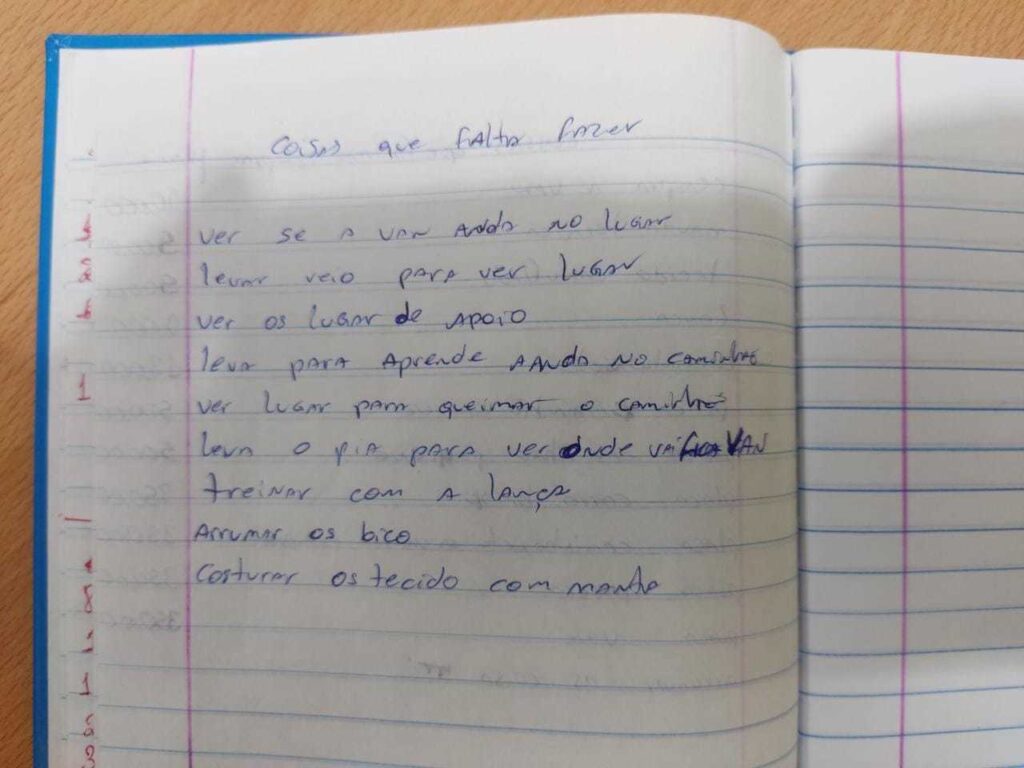 Coisas que falta fazer
ver se a van anda no lugar
levar veio para ver lugar
ver os lugar de apoio
leva para aprende aanda no caminhao
ver lugar para queimar o caminhão
leva o pia para ver onde vai fica van
treinar com a lança
arrumar os bico
costurar os tecido com manta